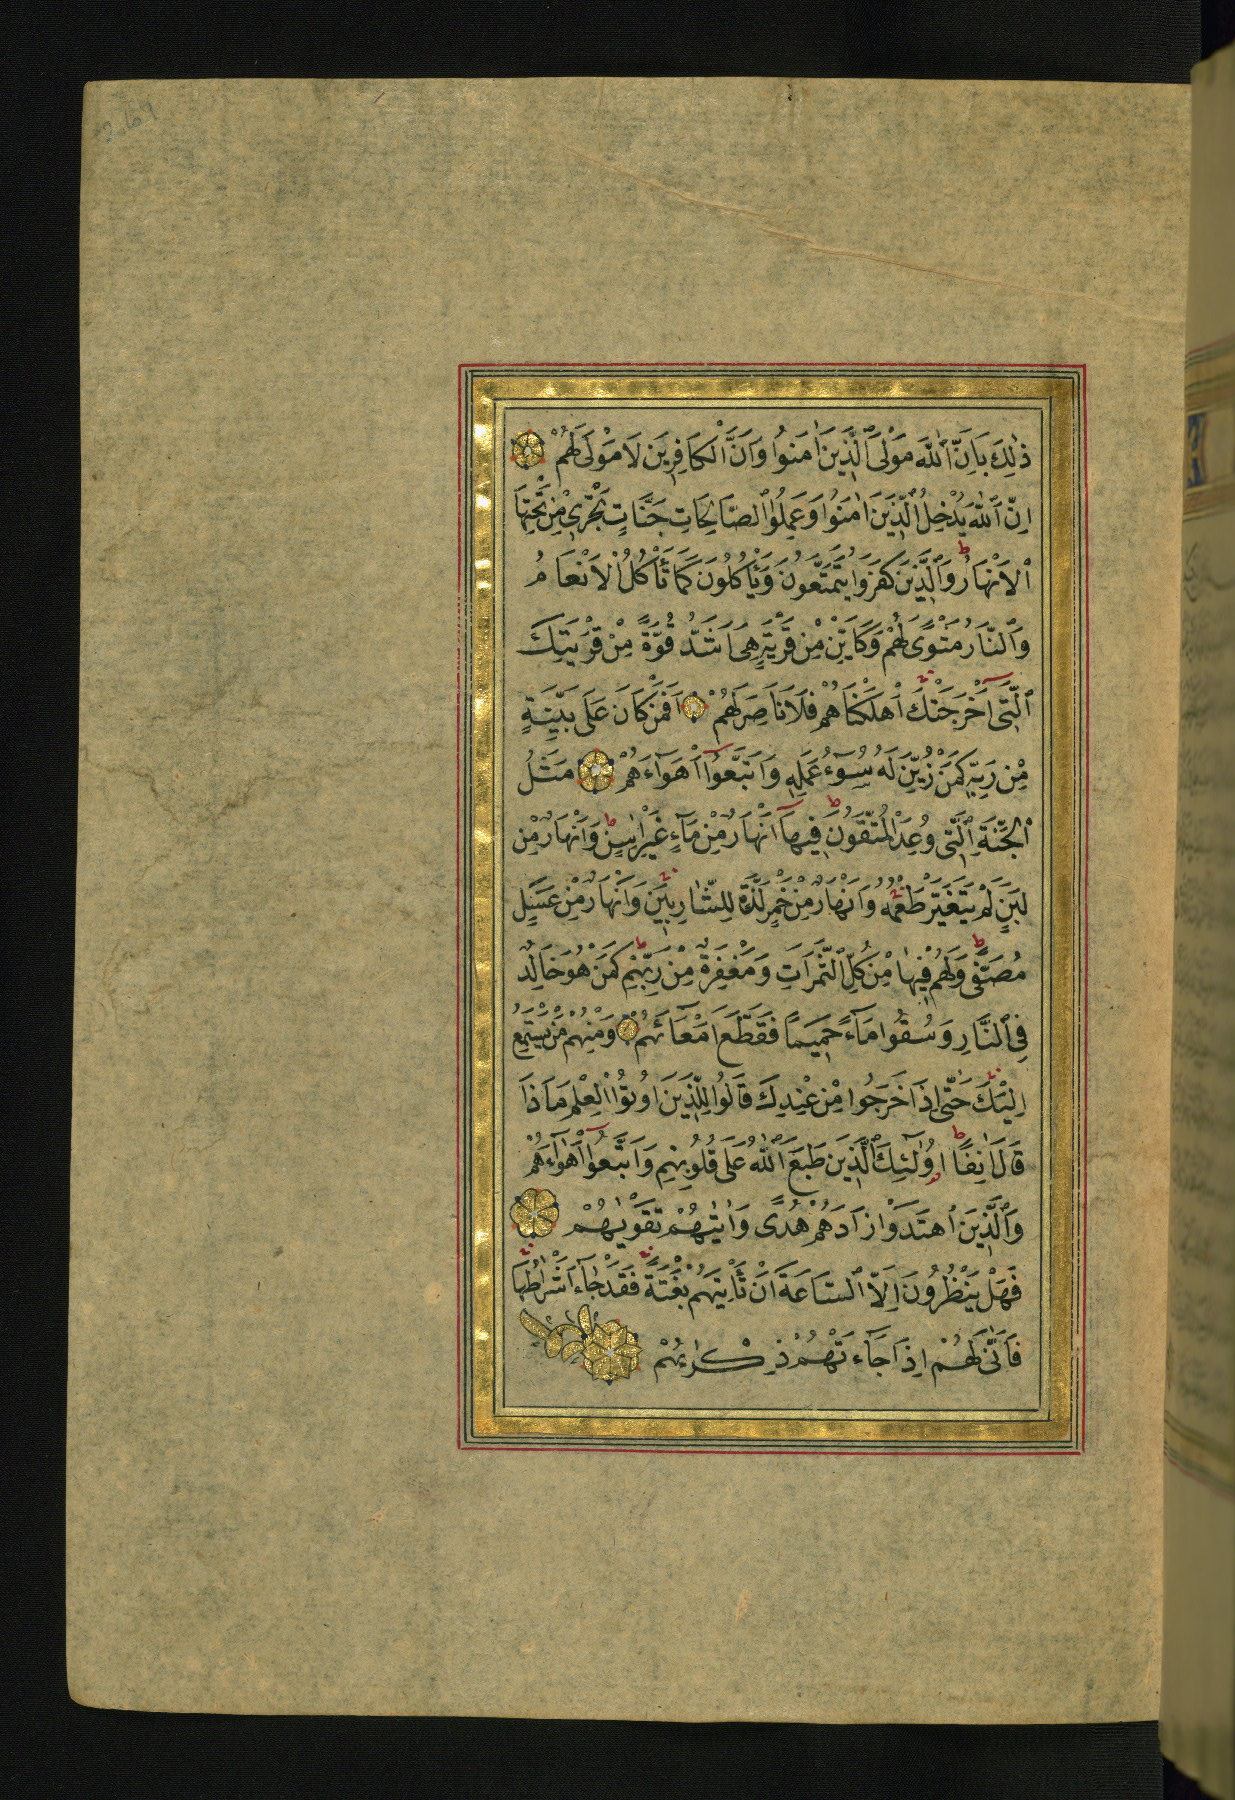 ذٰلِكَ بِاَنَّ ٱللّٰهَ مَوْلَى ٱلَّذِينَ اٰمَنُوا وَاَنَّ ٱلْكَافِرِينَ لَا مَوْلٰى لَهُمْ
اِنَّ ٱللّٰهَ يُدْخِلُ ٱلَّذِينَ اٰمَنُوا وَعَمِلُوا ٱلصَّالِحَاتِ جَنَّاتٍ تَجْرِي مِنْ تَحْتِهَا
ٱلْاَنْهَارُ ط وَٱلَّذِينَ كَفَرُوا يَتَمَتَّعُونَ وَيَأْكُلُونَ كَمَا تَأْكُلُ ٱلْاَنْعَامُ
وَٱلنَّارُ مَثْوًى لَهُمْ وَكَاَيِّنْ مِنْ قَرْيَةٍ هِيَ اَشَدُّ قُوَّةً مِنْ قَرْيَتِكَ
ٱلَّتِي اَخْرَجَتْكَ اَهْلَكْنَاهُمْ فَلَا نَاصِرَ لَهُمْ اَفَمَنْ كَانَ عَلٰى بَيِّنَةٍ
مِنْ رَبِّهِ كَمَنْ زُيِّنَ لَهُ سُوٓءُ عَمَلِهِ وَاتَّبَعُوٓا اَهْوَآءَهُمْ مَثَلُ
ٱلْجَنَّةِ ٱلَّتِي وُعِدَ ٱلْمُتَّقُونَ ط فِيهَآ اَنْهَارٌ مِنْ مَآءٍ غَيْرِ اٰسِنٍ ط وَاَنْهَارٌ مِنْ
لَبَنٍ لَمْ يَتَغَيَّرْ طَعْمُهُ وَاَنْهَارٌ مِنْ خَمْرٍ لَذَّةٍ لِلشَّارِبِينَ وَاَنْهَارٌ مِنْ عَسَلٍ
مُصَفًّى ط وَلَهُمْ فِيهَا مِنْ كُلِّ ٱلثَّمَرَاتِ وَمَغْفِرَةٌ مِنْ رَبِّهِمْ ط كَمَنْ هُوَ خَالِدٌ
فِي ٱلنَّارِ وَسُقُوا مَآءً حَمِيمًا فَقَطَّعَ اَمْعَآءَهُمْ وَمِنْهُمْ مَنْ يَسْتَمِعُ
اِلَيْكَ حَتّٰى اِذَا خَرَجُوا مِنْ عِنْدِكَ قَالُوا لِلَّذِينَ اُوتُوا ٱلْعِلْمَ مَاذَا
قَالَ اٰنِفًا ط اُولٰٓئِكَ ٱلَّذِينَ طَبَعَ ٱللّٰهُ عَلٰى قُلُوبِهِمْ وَاتَّبَعُوٓا اَهْوَآءَهُمْ
وَٱلَّذِينَ ٱهْتَدَوْا زَادَهُمْ هُدًى وَاٰتٰيهُمْ تَقْوٰيهُمْ
فَهَلْ يَنْظُرُونَ اِلَّا ٱلسَّاعَةَ اَنْ تَأْتِيَهُمْ بَغْتَةً فَقَدْ جَآءَ اَشْرَاطُهَا
فَاَنّٰى لَهُمْ اِذَا جَآءَتْهُمْ ذِكْرٰيهُمْ